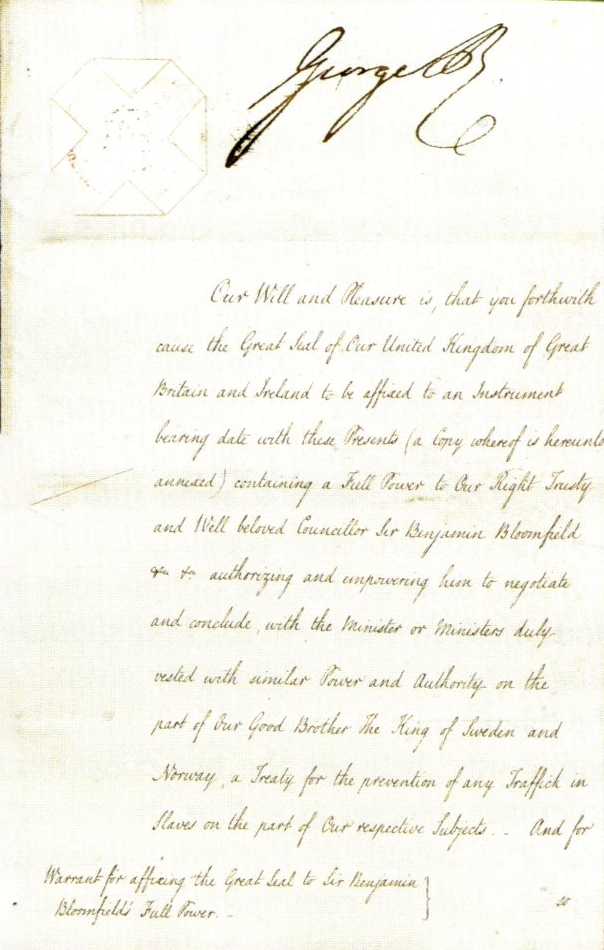 George R
Our Will and Pleasure is, that you forthwith
cause the Great Seal of Our United Kingdom of Great
Britain and Ireland to be affixed to an Instrument
bearing date with these Presents (a Copy whereof is hereunto
annexed) containing a Full Power to Our Right Trusty
and Well beloved Councillor Sir Benjamin Bloomfield
&c &c authorizing and empowering him to negotiate
and conclude, with the Minister or Ministers duly
vested with similar Power and Authority on the
part of Our Good Brother The King of Sweden and
Norway, a Treaty for the prevention of any Traffick in
Slaves on the part of Our respective Subjects. _ And for
Warrant for affixing the Great Seal to Sir Benjamin
Bloomfield's Full Power. _
so